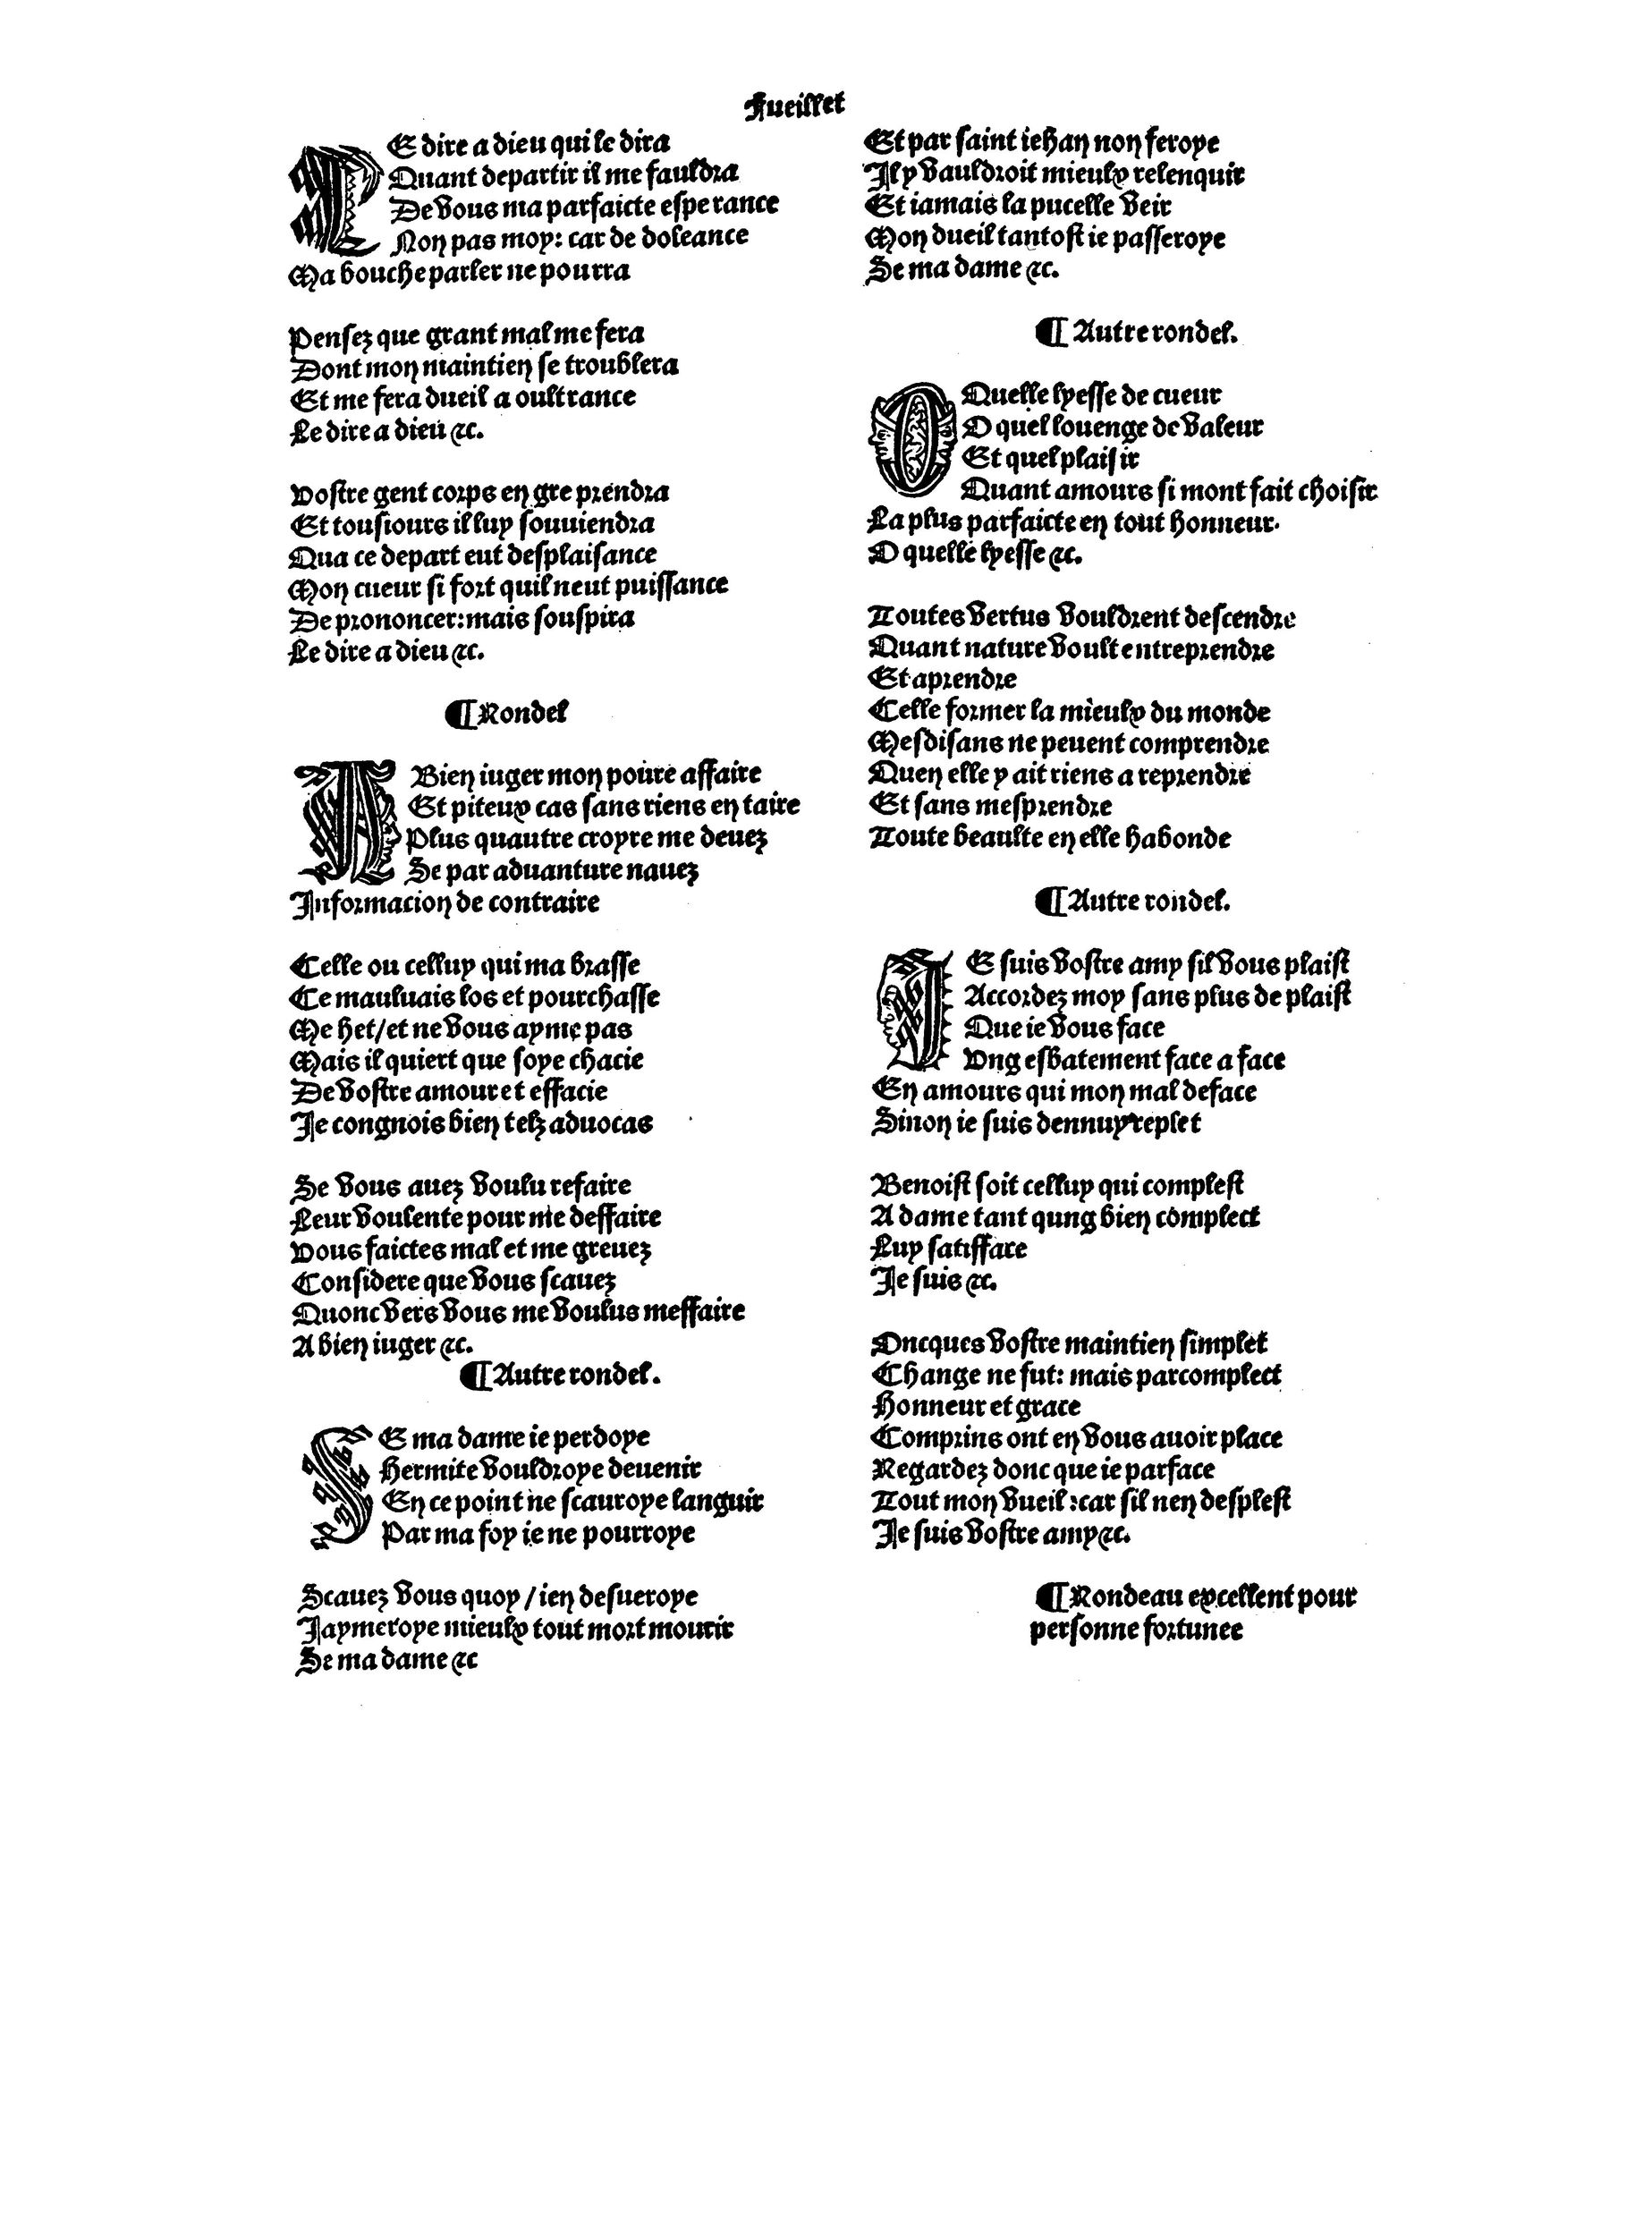 Fueillet
LE dire a dieu qui le dira
Quant departir il me fauldra
De vous ma parfaicte esperance
Non pas moy: car de doleance
Ma bouche parler ne pourra
Pensez que grant mal me fera
Dont mon maintien se troublera
Et me fera dueil a oultrance
Le dire a dieu &c.
Vostre gent corps en gre prendra
Et tousiours il luy souuiendra
Qua ce depart eut desplaisance
Mon cueur si fort quil neut puissance
De prononcer: mais souspira
Le dire a dieu &c.
¶ Rondel
A Bien iuger mon poure affaire
Et piteux cas sans riens en taire
Plus quautre croyre me deuez
Se par aduanture nauez
Informacion de contraire
Celle ou celluy qui ma brasse
Ce mauluais los et pourchasse
Me het/et ne vous ayme pas
Mais il quiert que soye chacie
De vostre amour et effacie
Je congnois bien telz aduocas
Se vous auez voulu refaire
Leur voulente pour me deffaire
Vous faictes mal et me greuez
Considere que vous scauez
Quonc vers vous me voulus meffaire
A bien iuger &c.
¶ Autre rondel.
SE ma dame ie perdoye
Hermite vouldroye deuenir
En ce point ne scauroye languir
Par ma foy ie ne pourroye
Scauez vous quoy / ien desueroye
Jaymeroye mieulx tout mort mourir
Se ma dame &c
Et par saint iehan non feroye
Il y vauldroit mieulx relenquir
Et iamais la pucelle veir
Mon dueil tantost ie passeroye
Se ma dame &c.
¶ Autre rondel.
O Quelle lyesse de cueur
O quel louenge de valeur
Et quel plaisir
Quant amours si mont fait choisir
La plus parfaicte en tout honneur.
O quelle lyesse &c.
Toutes vertus vouldrent descendre
Quant nature voult entreprendre
Et aprendre
Celle former la mieulx du monde
Mesdisans ne peuent comprendre
Quen elle y ait riens a reprendre
Et sans mesprendre
Toute beaulte en elle habonde
¶ Autre rondel.
JE suis vostre amy sil vous plaist
Accordez moy sans plus de plaist
Que ie vous face
Vng esbatement face a face
En amours qui mon mal deface
Sinon ie suis dennuy replet
Benoist soit celluy qui complest
A dame tant qung bien complect
Luy satifface
Je suis &c.
Oncques vostre maintien simplet
Change ne fut: mais parcomplect
Honneur et grace
Comprins ont en vous auoir place
Regardez donc que ie parface
Tout mon vueil: car sil nen desplest
Je suis vostre amy &c.
¶ Rondeau excellent pour
personne fortunee